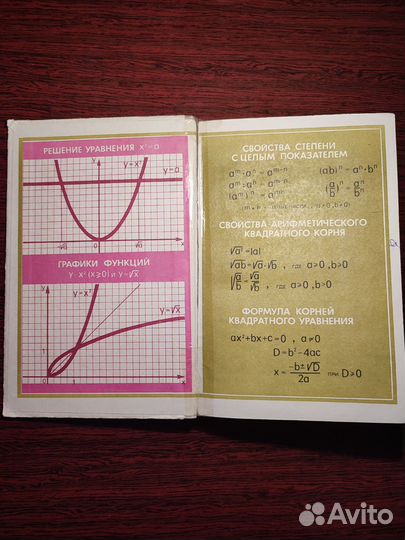 РЕШЕНИЕ УРАВНЕНИЯ x²=a
y
y=x²
y=a
-√a
0
√a
x
ГРАФИКИ ФУНКЦИЙ
y=x² (x≥0) и y=√x
y
y=x²
y=√x
1
0
1
x
СВОЙСТВА СТЕПЕНИ
С ЦЕЛЫМ ПОКАЗАТЕЛЕМ
aᵐ·aⁿ = aᵐ⁺ⁿ (ab)ⁿ = aⁿ·bⁿ
aᵐ:aⁿ = aᵐ⁻ⁿ (a/b)ⁿ = aⁿ/bⁿ
(aᵐ)ⁿ = aᵐⁿ
СВОЙСТВА АРИФМЕТИЧЕСКОГО
КВАДРАТНОГО КОРНЯ
√a² = |a|
√ab = √a·√b , где a≥0, b≥0
√a/b = √a/√b , где a≥0, b>0
ФОРМУЛА КОРНЕЙ
КВАДРАТНОГО УРАВНЕНИЯ
ax²+bx+c=0 , a≠0
D=b²-4ac
x = -b±√D/2a ПРИ D≥0
Avito